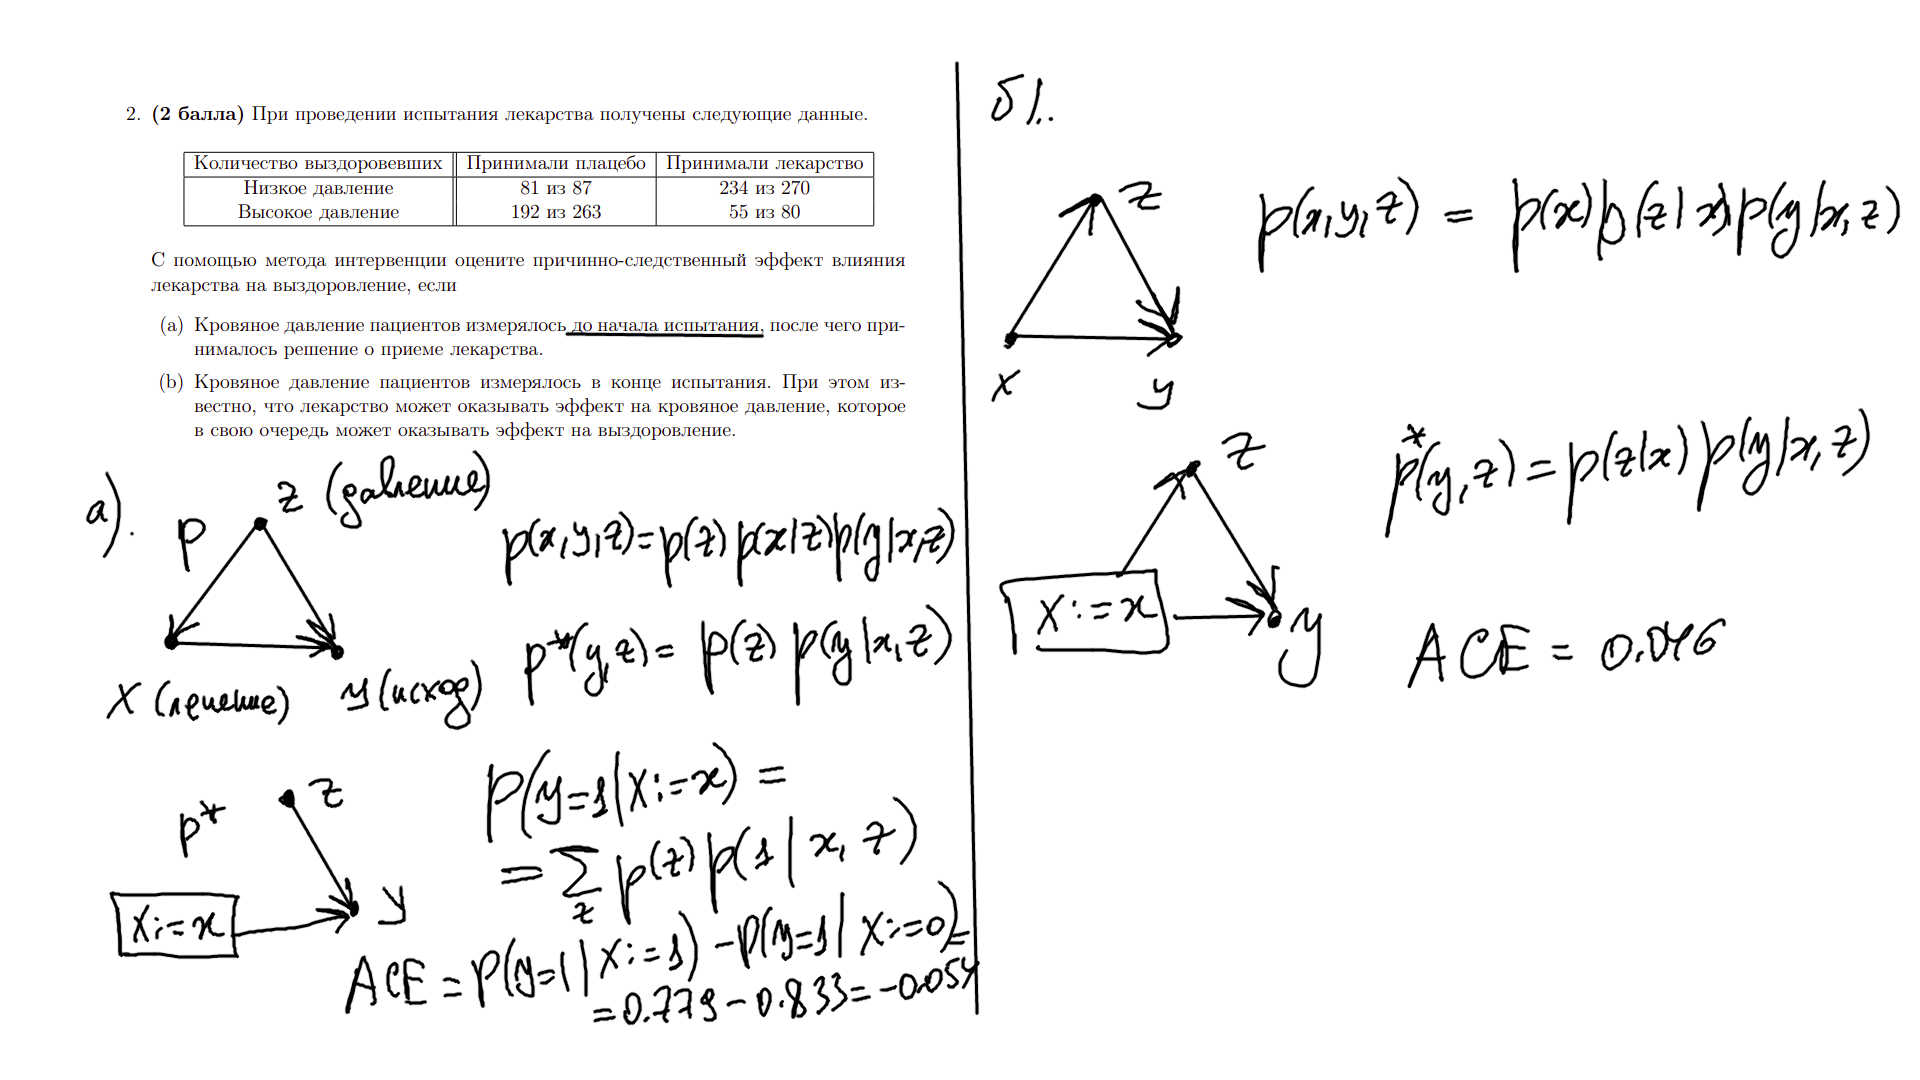 2. (2 балла) При проведении испытания лекарства получены следующие данные.
Количество выздоровевших Принимали плацебо Принимали лекарство
Низкое давление 81 из 87 234 из 270
Высокое давление 192 из 263 55 из 80
С помощью метода интервенции оцените причинно-следственный эффект влияния
лекарства на выздоровление, если
(a) Кровяное давление пациентов измерялось до начала испытания, после чего при-
нималось решение о приеме лекарства.
(b) Кровяное давление пациентов измерялось в конце испытания. При этом из-
вестно, что лекарство может оказывать эффект на кровяное давление, которое
в свою очередь может оказывать эффект на выздоровление.
а).
p
z (давление)
x (лечение)
y (исход)
p(x,y,z)=p(z)p(x|z)p(y|x,z)
p*(y,z)= p(z) p(y|x,z)
p*
z
X:=x
y
p(y=1|X:=x) =
= ∑z p(z) p(1|x,z)
ACE = p(y=1|X:=1) - p(y=1|X:=0) =
= 0.779 - 0.833 = -0.054
б).
z
x
y
p(x,y,z) = p(x)p(z|x)p(y|x,z)
z
X:=x
y
p*(y,z) = p(z|x) p(y|x,z)
ACE = 0.046